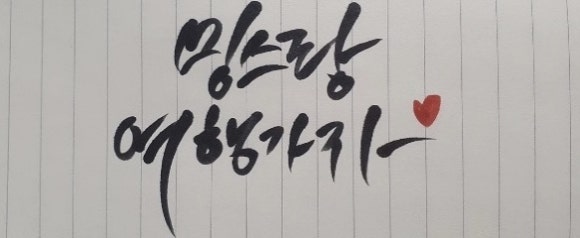 밍스랑
여행가자